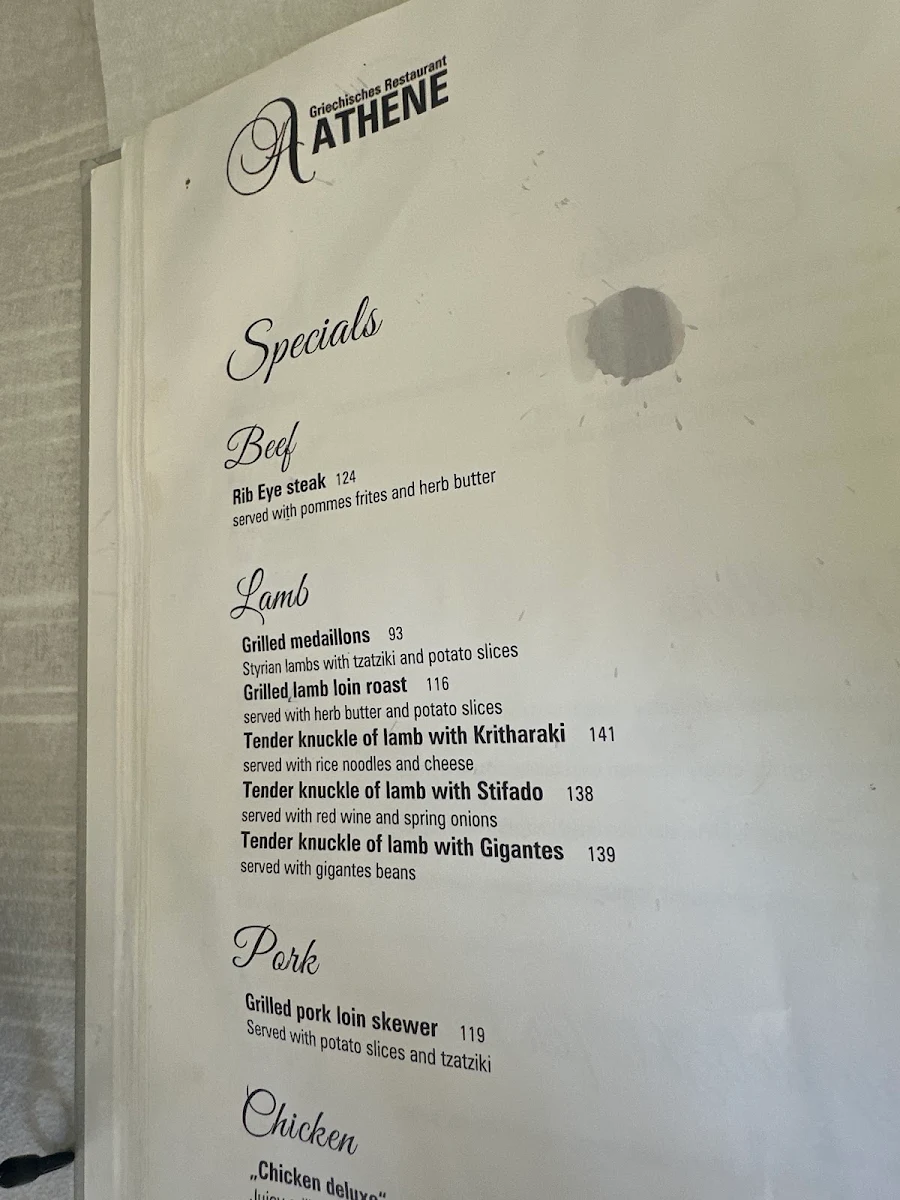 Griechisches Restaurant
ATHENE
Specials
Beef
Rib Eye steak 124
served with pommes frites and herb butter
Lamb
Grilled medaillons 93
Styrian lambs with tzatziki and potato slices
Grilled lamb loin roast 116
served with herb butter and potato slices
Tender knuckle of lamb with Kritharaki 141
served with rice noodles and cheese
Tender knuckle of lamb with Stifado 138
served with red wine and spring onions
Tender knuckle of lamb with Gigantes 139
served with gigantes beans
Pork
Grilled pork loin skewer 119
Served with potato slices and tzatziki
Chicken
„Chicken deluxe“